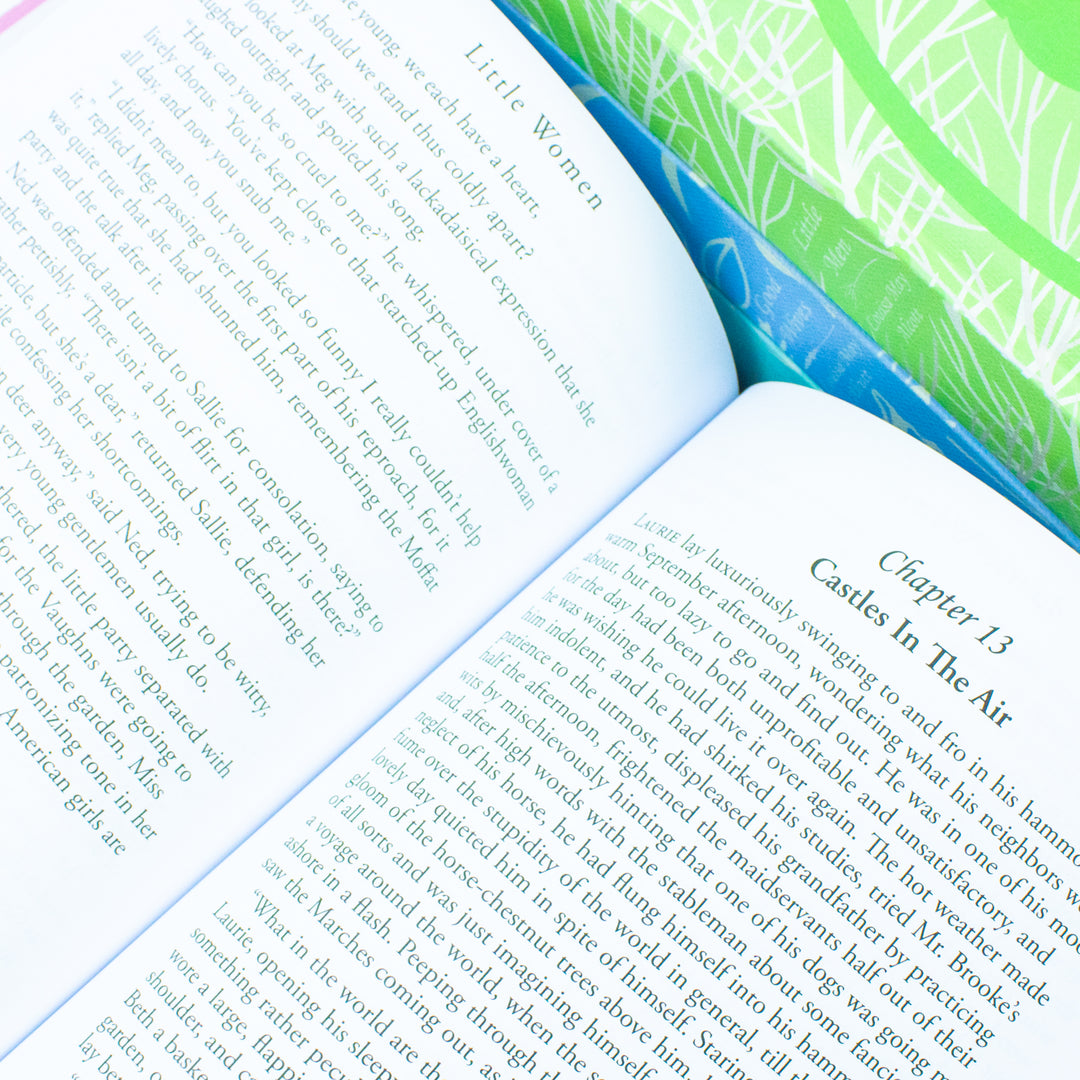 Little Women
are young, we each have a heart,
should we stand thus coldly apart?
looked at Meg with such a lackadaisical expression that she
laughed outright and spoiled his song.
“How can you be so cruel to me?” he whispered, under cover of a
lively chorus. “You’ve kept close to that starched-up Englishwoman
all day, and now you snub me.”
“I didn’t mean to, but you looked so funny I really couldn’t help
it,” replied Meg, passing over the first part of his reproach, for it
was quite true that she had shunned him, remembering the Moffat
party and the talk after it.
Ned was offended and turned to Sallie for consolation, saying to
rather pettishly, “There isn’t a bit of flirt in that girl, is there?”
but she’s a dear,” returned Sallie, defending her
confessing her shortcomings.
deer anyway,” said Ned, trying to be witty,
very young gentlemen usually do.
the little party separated with
for the Vaughns were going to
through the garden, Miss
patronizing tone in her
American girls are
Chapter 13
Castles In The Air
LAURIE lay luxuriously swinging to and fro in his
warm September afternoon, wondering what his neighbors
about, but too lazy to go and find out. He was in one of his
for the day had been both unprofitable and unsatisfactory, and
he was wishing he could live it over again. The hot weather made
him indolent, and he had shirked his studies, tried Mr. Brooke’s
patience to the utmost, displeased his grandfather by practicing
half the afternoon, frightened the maidservants half out of their
wits by mischievously hinting that one of his dogs was going
and, after high words with the stableman about some fancied
neglect of his horse, he had flung himself into his
fume over the stupidity of the world in general, till
lovely day quieted him in spite of himself. Staring
gloom of the horse-chestnut trees above him,
of all sorts and was just imagining himself
a voyage around the world, when the
ashore in a flash. Peeping through
saw the Marches coming out, as
“What in the world are
Laurie, opening his sleepy
something rather
wore a large,
shoulder, and
Beth a
garden,
lay
Little
Men
Good
Wives